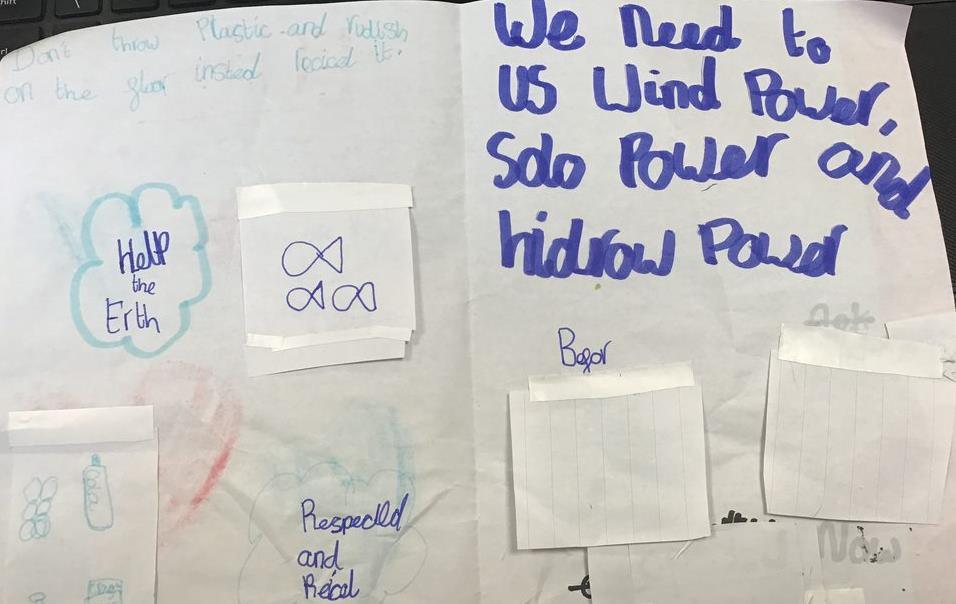 Don't throw Plastic and rubish
on the gloor insted recicel it.
Help
the
Erth
Respected
and
Reical
We Need to
US Wind Power,
Solo Power and
hidrow Power
Befor
Now